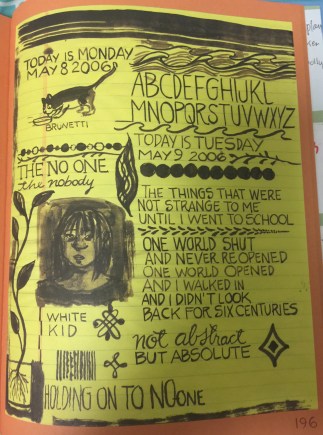 TODAY IS MONDAY
MAY 8 2006
BRUNETTI
ABCDEFGHIJKL
MNOPQRSTUVWXYZ
TODAY IS TUESDAY
MAY 9 2006
THE NO ONE
the nobody
THE THINGS THAT WERE
NOT STRANGE TO ME
UNTIL I WENT TO SCHOOL
ONE WORLD SHUT
AND NEVER REOPENED
ONE WORLD OPENED
AND I WALKED IN
AND I DIDN'T LOOK
BACK FOR SIX CENTURIES
WHITE
KID
not abstract
BUT ABSOLUTE
HOLDING ON TO NO ONE
196